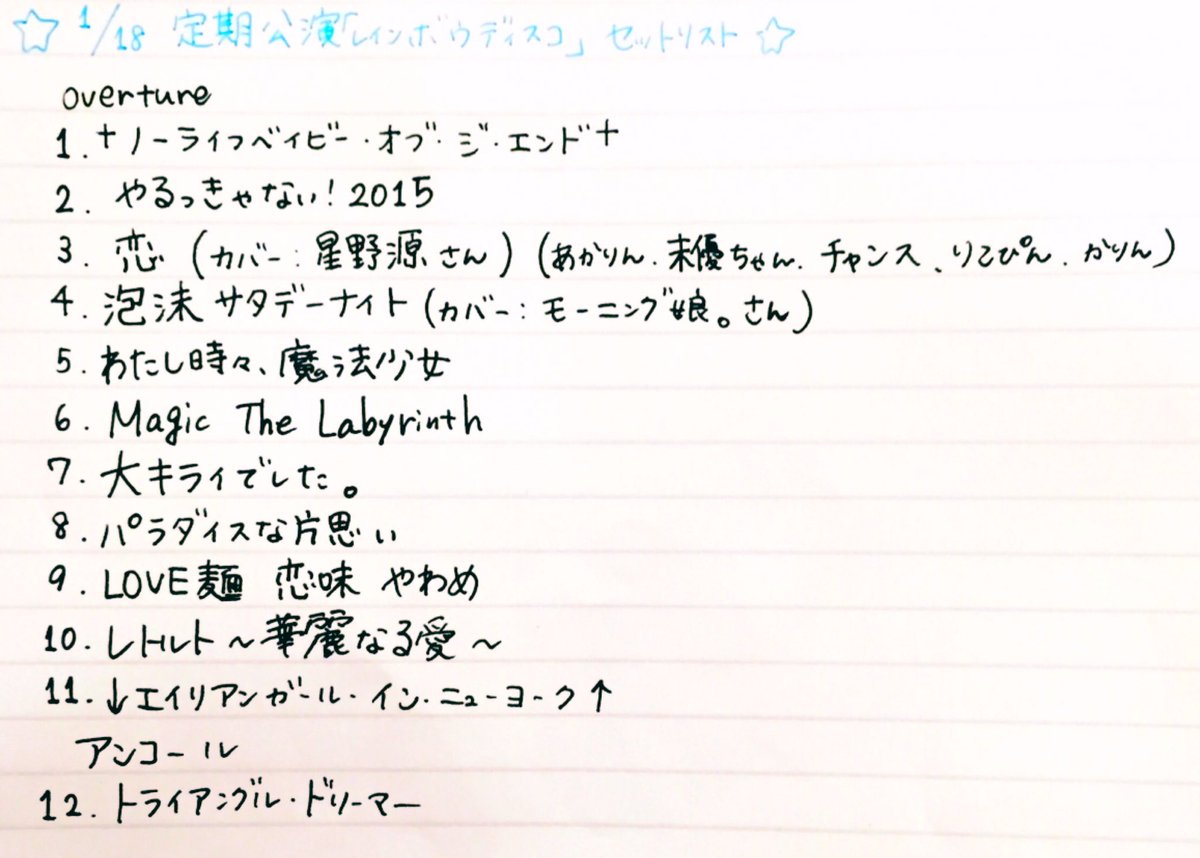 ☆ 1/18 定期公演「レインボウディスコ」 セットリスト ☆
overture
1. +ノーライフベイビー・オブ・ジ・エンド+
2. やるっきゃない！2015
3. 恋 (カバー：星野源さん) (あかりん、未優ちゃん、チャンス、りこぴん、かりん)
4. 泡沫サタデーナイト (カバー：モーニング娘。さん)
5. わたし時々、魔法少女
6. Magic The Labyrinth
7. 大キライでした。
8. パラダイスな片思い
9. LOVE麺 恋味 やわめ
10. レトルト～華麗なる愛～
11. ↓エイリアンガール・イン・ニューヨーク↑
アンコール
12. トライアングル・ドリーマー